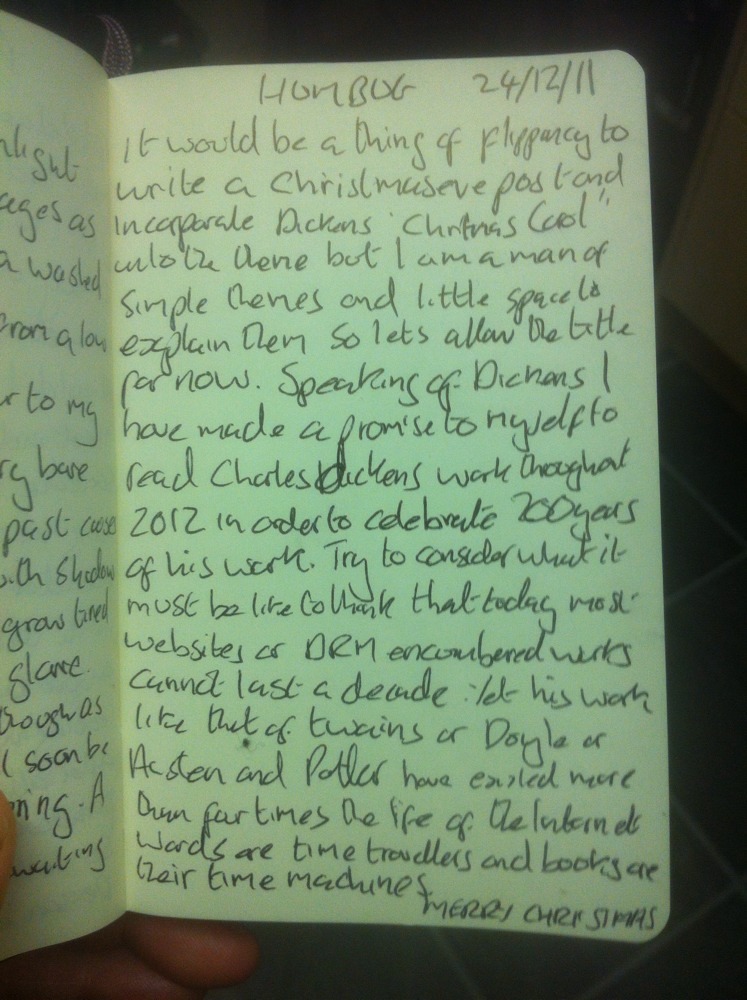 nlight
ages as
a washed
from a low
r to my
ry bare
past
with shadow
grow tired
glare.
though as
I soon be
ning. A
waiting
HUMBUG 24/12/11
It would be a thing of flippancy to
write a Christmas eve post and
Incorporate Dickens 'Christmas Carol'
into the theme but I am a man of
simple themes and little space to
explain them so lets allow the title
for now. Speaking of Dickens I
have made a promise to myself to
read Charles Dickens work throughout
2012 in order to celebrate 200 years
of his work. Try to consider what it
must be like to think that today most
websites or DRM encoumbered works
cannot last a decade yet his work
like that of twains or Doyle or
Austen and Potter have existed more
than four times the life of the Internet
Words are time travellers and books are
their time machines.
MERRY CHRISTMAS